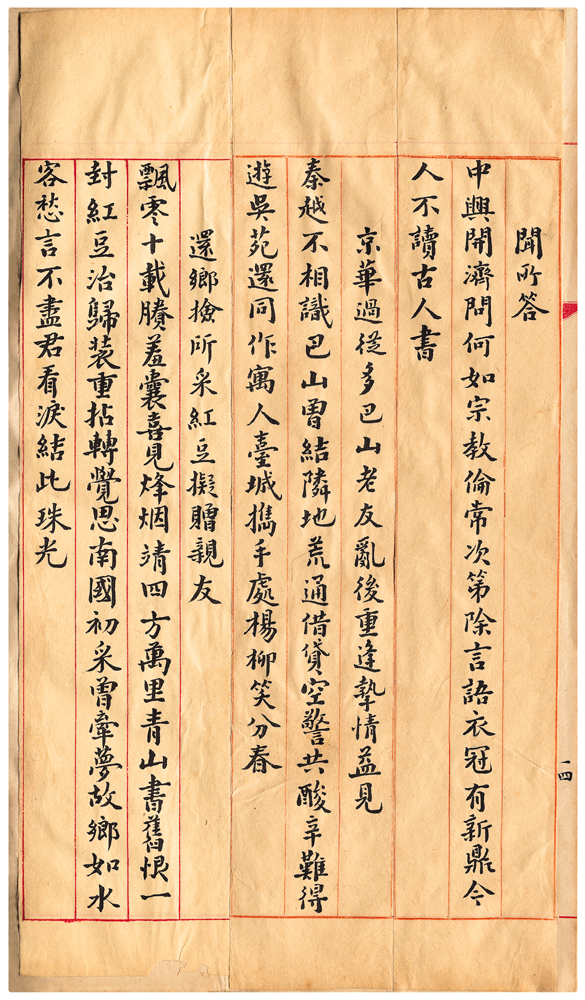 聞所答
中興開濟問何如宗教倫常次第除言語衣冠有新鼎今
人不讀古人書
京華過從多巴山老友亂後重逢摯情益見
秦越不相識巴山曾結隣地荒通借貸空警共酸辛難得
遊吳苑還同作寓人臺城攜手處楊柳笑分春
還鄉撿所采紅豆擬贈親友
飄零十載賸羞囊喜見烽烟靖四方萬里青山書舊恨一
封紅豆治歸装重拈轉覺思南國初采曾牽夢故鄉如水
客愁言不盡君看淚結此珠光
一四